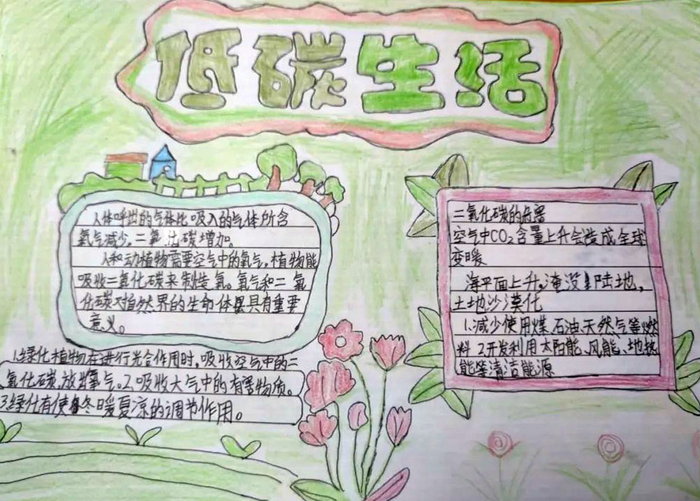 低碳生活
人体呼出的气体比吸入的气体所含
氧气减少,二氧化碳增加
人和动植物需要空气中的氧气,植物能
吸收二氧化碳来制造氧。氧气和二氧
化碳对自然界的生命体具有重要
意义。
1.绿化植物在进行光合作用时,吸收空气中的二
氧化碳,放出氧气。2.吸收大气中的有害物质。
3.绿化有使冬暖夏凉的调节作用。
二氧化碳的危害
空气中CO2含量上升会造成全球
变暖
海平面上升,淹没陆地,
土地沙漠化
1.减少使用煤,石油,天然气等燃
料 2.开发利用太阳能、风能、地热
能等清洁能源